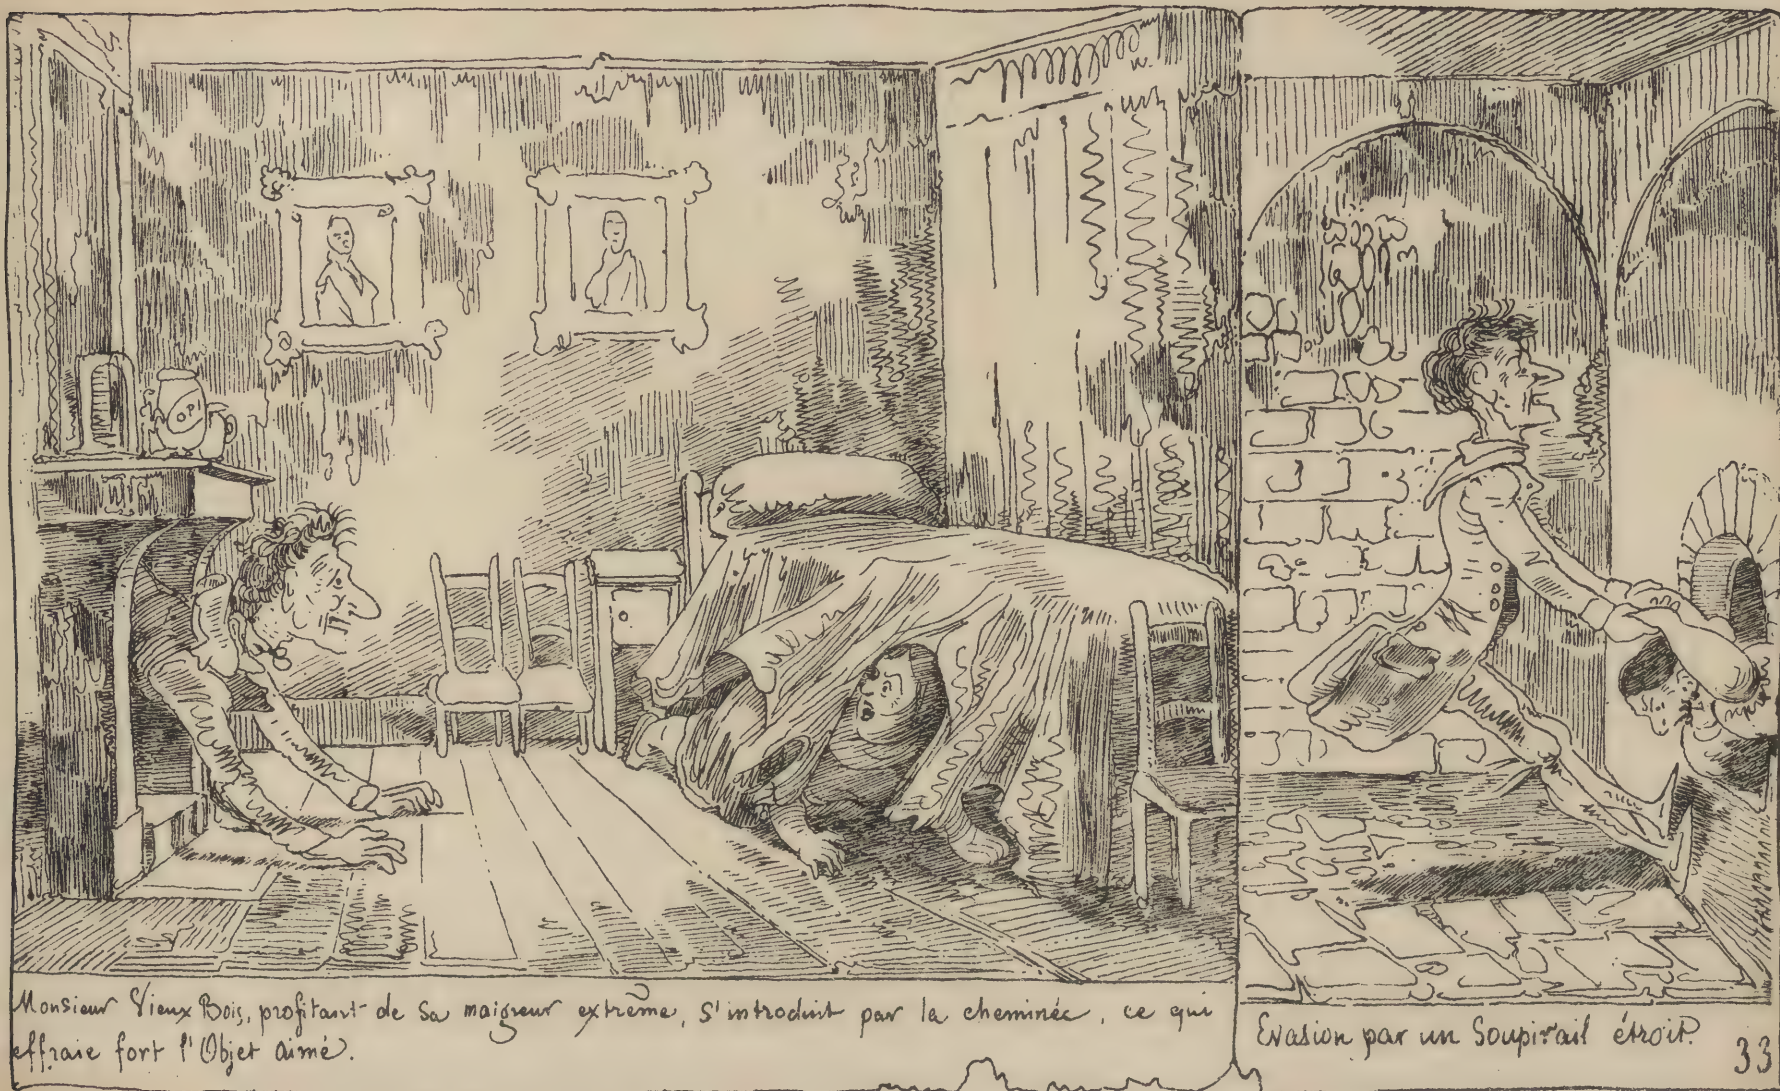 OPI
Monsieur Vieux Bois, profitant de sa maigreur extrême, s'introduit par la cheminée, ce qui
effraie fort l'Objet aimé.
Evasion par un Soupirail étroit.
33